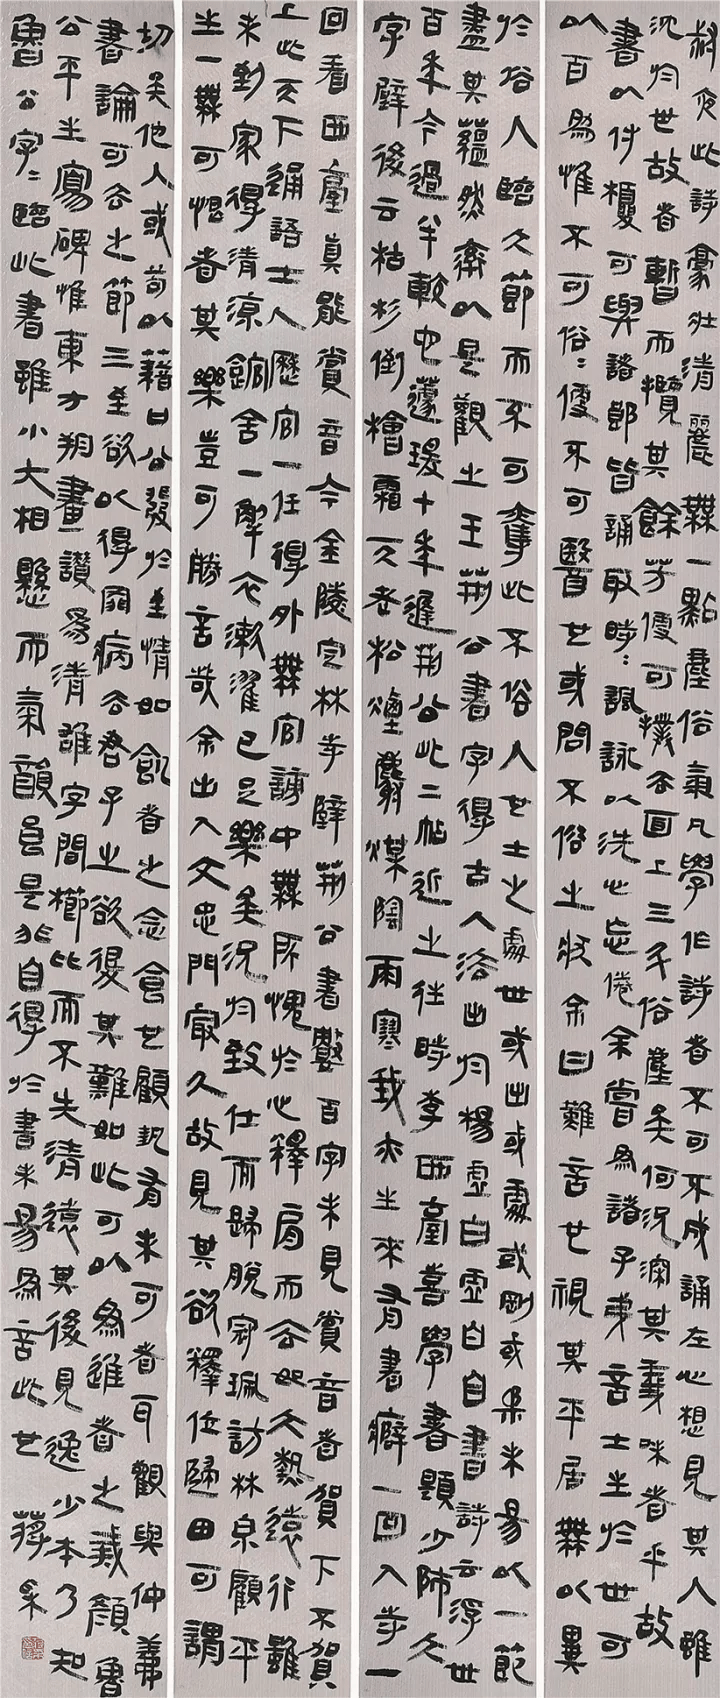 叔夜此詩豪壯清麗無一點塵俗氣凡學作詩者不可不成誦在心想見其人雖
沈於世故者暫而攬其餘芳便可撲去面上三斗俗塵矣何況深其義味者乎故
書以付榎可與諸郎皆誦取時〻諷詠以洗心忘倦余嘗為諸子弟言士生於世可
以百為惟不可俗〻便不可醫也或問不俗之狀余曰難言也視其平居無以異
於俗人臨大節而不可奪此不俗人也士之處世或出或處或剛或柔未易以一節
盡其蘊然率以是觀之王荊公書字得古人法出於楊虛白虛白自書詩云浮世
百年今過半較他蘧瑗十年遲荊公此二帖近之往時李西臺喜學書題少師大
字壁後云枯杉倒檜霜天老松煙麝煤陰雨寒我亦生來有書癖一回入寺一
回看西臺真能賞音今金陵定林寺壁荊公書數百字未見賞音者賀下不賀
上此天下通語士人歷官一任得外無官謗中無所愧於心釋肩而去如大熱遠行雖
未到家得清涼館舍一解衣漱濯已足樂矣況於致仕而歸脫冠珮訪林泉顧平
生一無可恨者其樂豈可勝言哉余出入文忠門最久故見其欲釋位歸田可謂
切矣他人或苟以藉口公發於至情如飢者之念食也顧勢有未可者耳觀與仲義
書論可去之節三至欲以得罪病去君子之欲退其難如此可以為進者之戒顏魯
公平生寫碑惟東方朔畫讚為清雄字間櫛比而不失清遠其後見逸少本乃知
魯公字〻臨此書雖小大相懸而氣韻良是非自得於書未易為言此也 蔣采